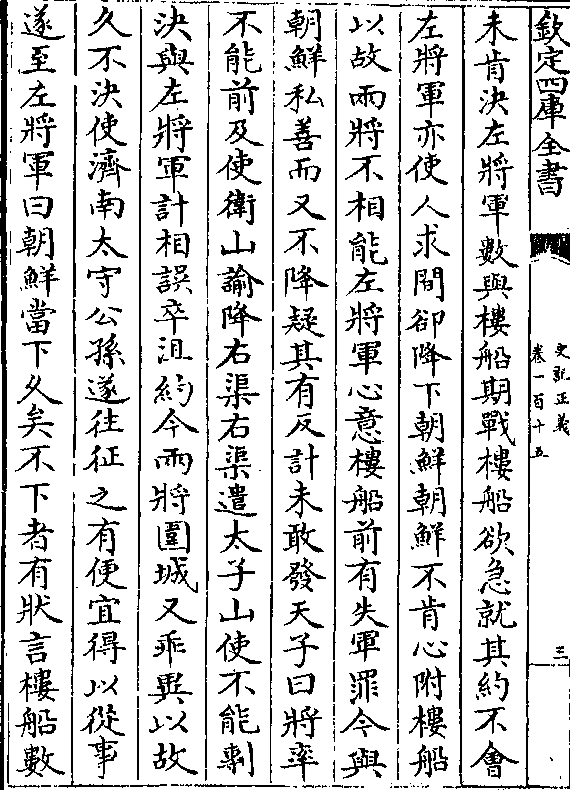 欽定四庫全書
史記正義
卷一百十五
三
未肯決左將軍數與樓船期戰樓船欲急就其約不會
左將軍亦使人求間卻降下朝鮮朝鮮不肯心附樓船
以故兩將不相能左將軍心意樓船前有失軍罪今與
朝鮮私善而又不降疑其有反計未敢發天子曰將率
不能前及使衛山諭降右渠右渠遣太子山使不能剸
決與左將軍計相誤卒沮約今兩將圍城又乖異以故
久不決使濟南太守公孫遂往征之有便宜得以從事
遂至左將軍曰朝鮮當下久矣不下者有狀言樓船數